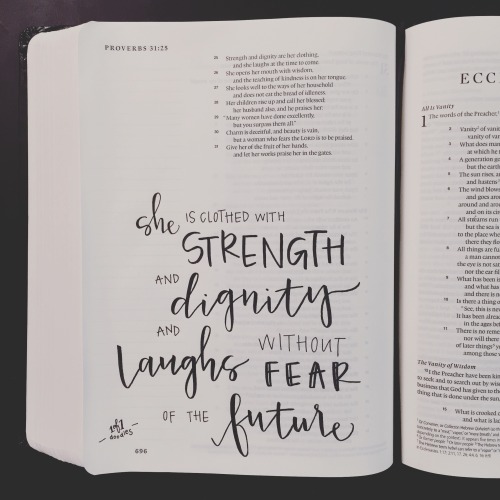 PROVERBS 31:25
25 Strength and dignity are her clothing,
and she laughs at the time to come.
26 She opens her mouth with wisdom,
and the teaching of kindness is on her tongue.
27 She looks well to the ways of her household
and does not eat the bread of idleness.
28 Her children rise up and call her blessed;
her husband also, and he praises her:
29 "Many women have done excellently,
but you surpass them all."
30 Charm is deceitful, and beauty is vain,
but a woman who fears the LORD is to be praised.
31 Give her of the fruit of her hands,
and let her works praise her in the gates.
she IS CLOTHED WITH
STRENGTH
AND
dignity
AND
laughs WITHOUT
FEAR
OF THE future
1of1
doodles
696
ECC
All Is Vanity
1 The words of the Preacher,
2 Vanity of vani
vanity of va
3 What does man
at which he
4 A generation g
but the earth
5 The sun rises, a
and hastens
6 The wind blows
and goes aro
around and aro
and on its cir
7 All streams run
but the sea is
to the place whe
there they flo
8 All things are fu
a man cannot
the eye is not sat
nor the ear fil
9 What has been is
and what has
and there is n
10 Is there a thing o
"See, this is ne
It has been alrea
in the ages be
11 There is no reme
nor will there
of later things
among those
The Vanity of Wisdom
12 I the Preacher have been kin
to seek and to search out by wis
business that God has given to the
thing that is done under the sun,
15 What is crooked c
and what is la